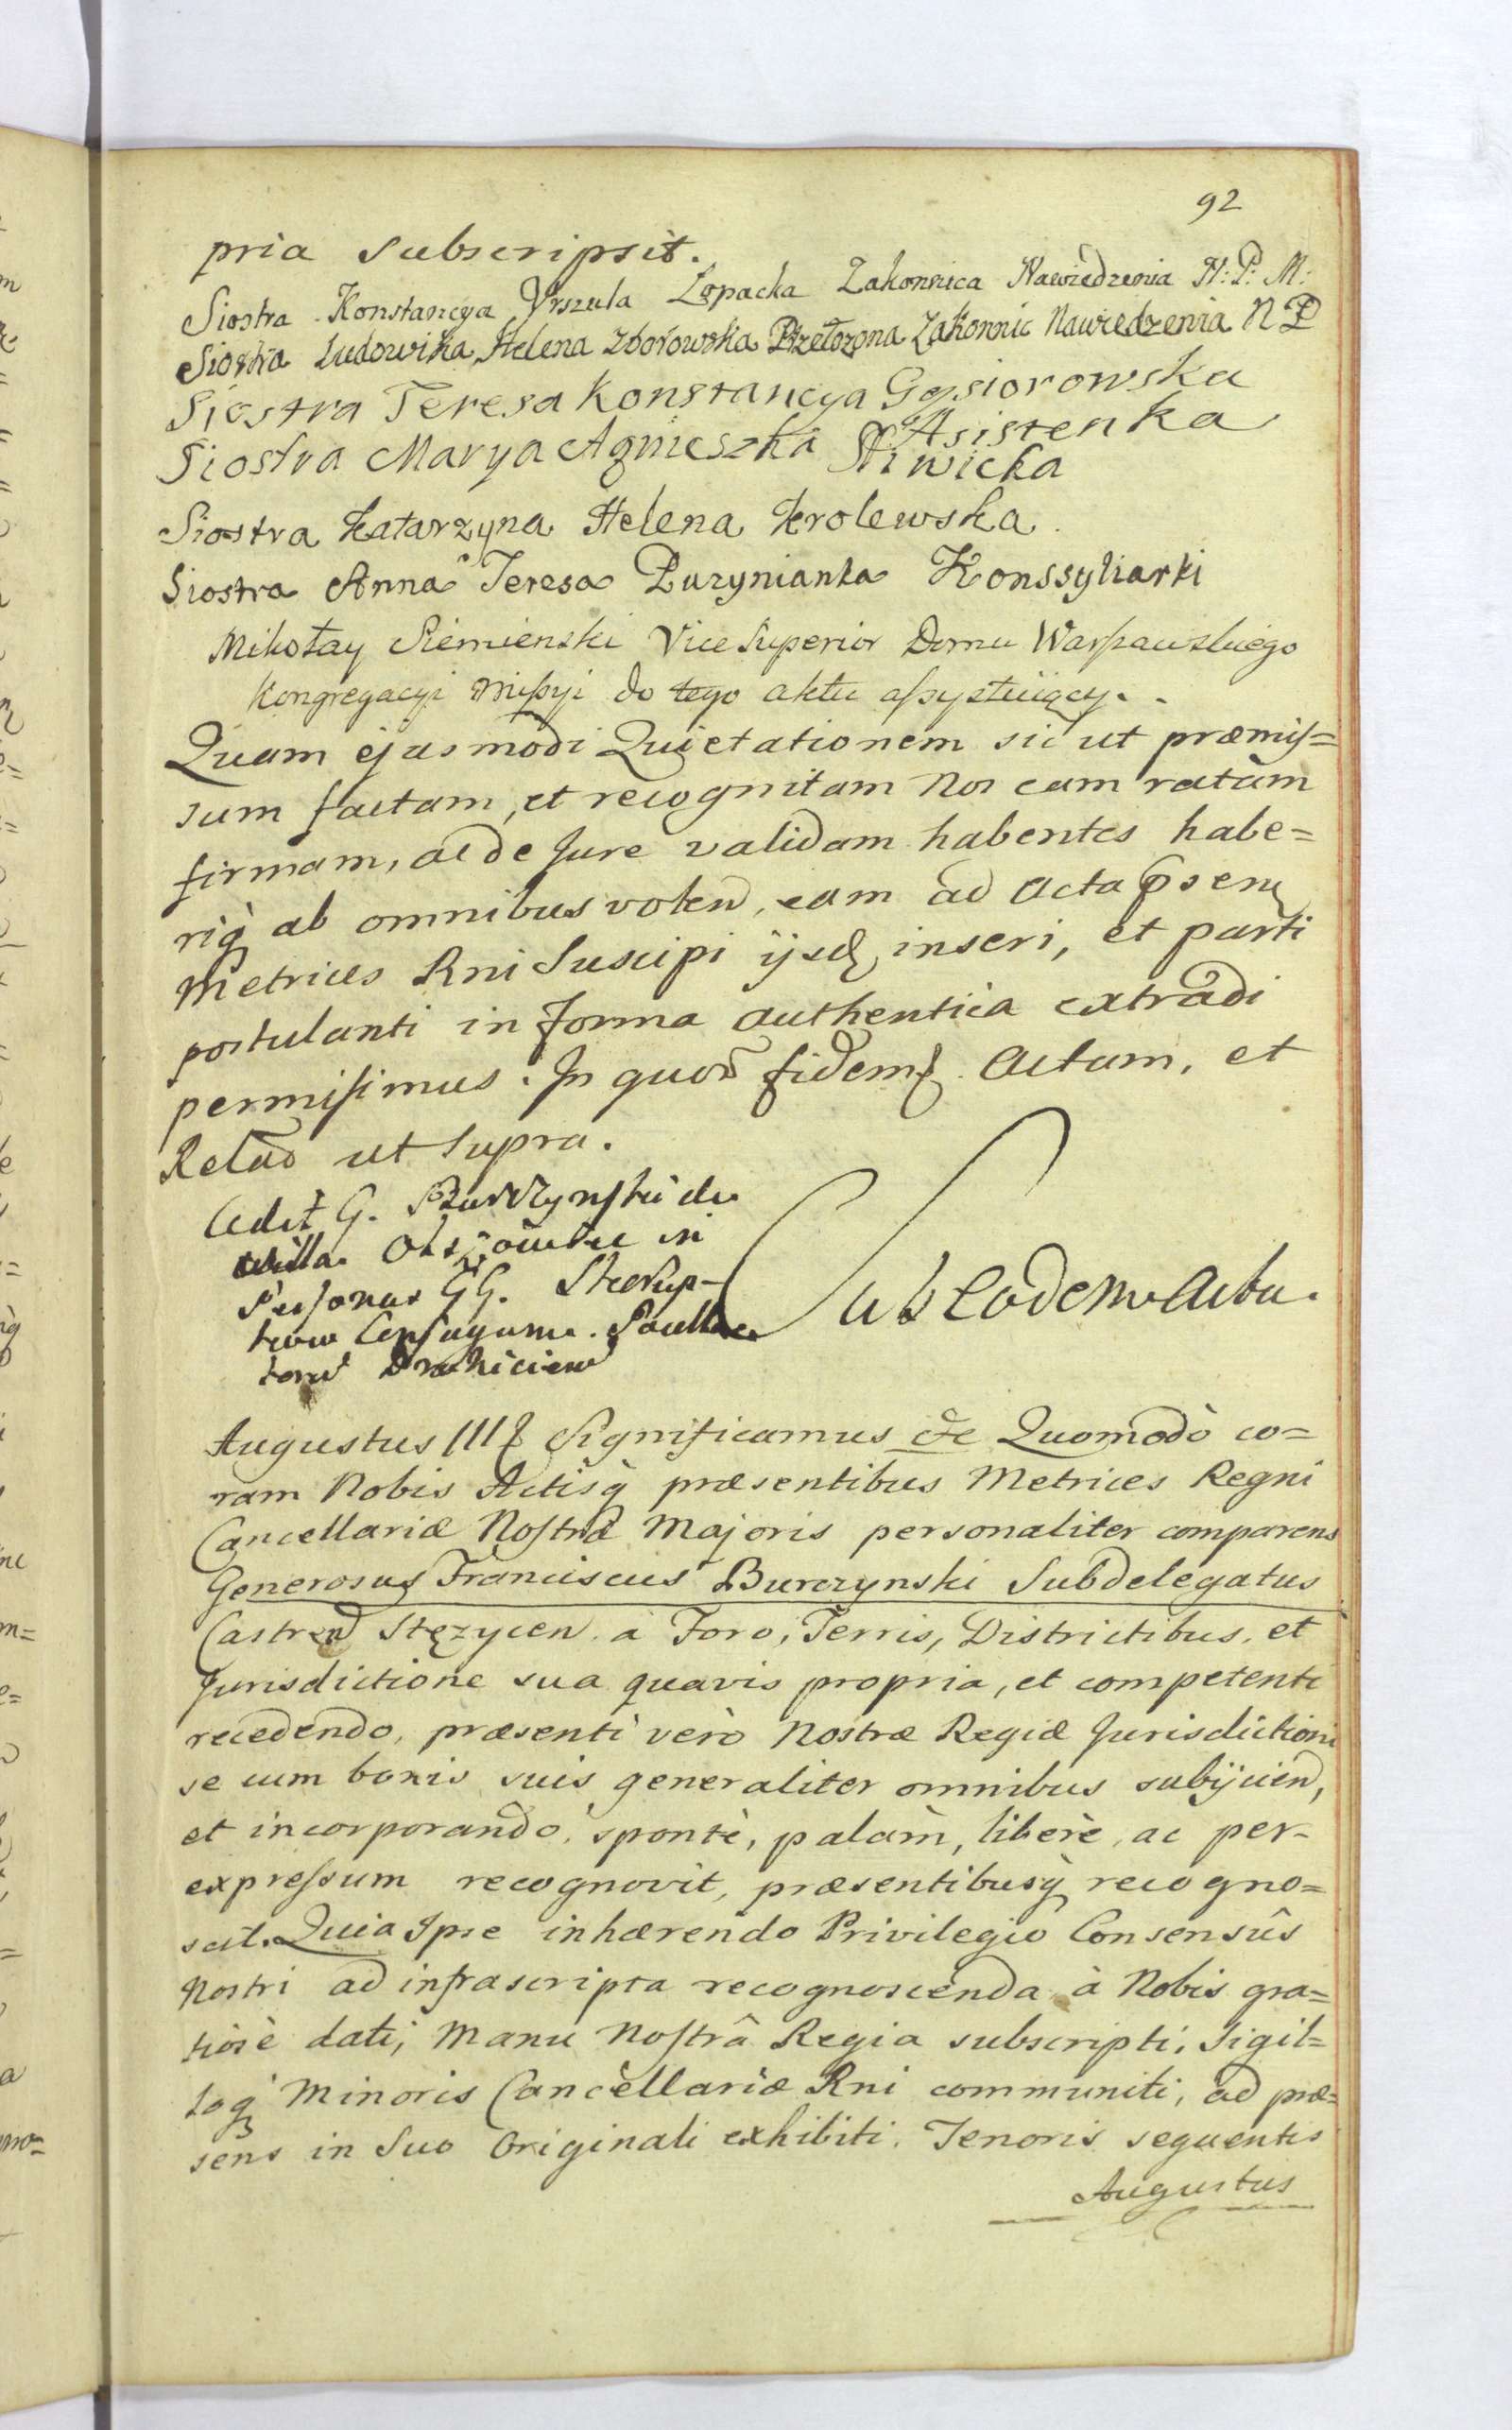 92
pria subscripsit.
Siostra Konstancya Vrszula Łopacka Zakonnica Nawiedzenia N: P: M:
Siostra Ludowika Helena Zborowska Przełozona Zakonnic Nawiedzenia N P
Siostra Teresa Konstancya Gąsiorowska
Asistenka
Siostra Marya Agnieszka Niwicka
Siostra Katarzyna Helena Krolewska
Siostra Anna Teresa Puzynianka Konssyliarki
Mikołay Siemienski Vice Superior Domu Warszawskiego
Kongregacyi Missyi do tego aktu assystuiący.
Quam ejusmodi Quietationem sic ut præmis=
sum factam, et recognitam Nos eam ratam
firmam, ac de Jure validam habentes habe=
riq̀ ab omnibus volen, eam ad Acta psen
Metrices Rni Suscipi ijsd inseri, et parti
postulanti in forma authentica extradi
permisimus. In quor fidem. Actum, et
Relat ut supra.
Cedit G. Burczynski de
villa in
Personas GG.
Consagum.
Sub Eodem Actu.
Augustus III Significamus &c Quomodò co=
ram Nobis Actisq̀ præsentibus Metrices Regni
Cancellariæ Nostræ Majoris personaliter comparens
Generosus Franciscus Burczynski Subdelegatus
Castren Stęzycen. a Foro, Terris, Districtibus, et
Jurisdictione sua quavis propria, et competenti
recedendo, præsenti verò Nostræ Regiæ Jurisdictioni
se cum bonis suis generaliter omnibus subijcien,
et incorporando, spontè, palàm, liberè, ac per-
expressum recognovit, præsentibusq̀ recogno=
scit. Quia Ipse inhærendo Privilegio Consensûs
Nostri ad infrascripta recognoscenda à Nobis gra=
tiosè dati, Manu Nostrâ Regia subscripti, Sigil=
loq̀ Minoris Cancellariæ Rni communiti, ad præ=
sens in Suo Originali exhibiti. Tenoris sequentis
Augustus